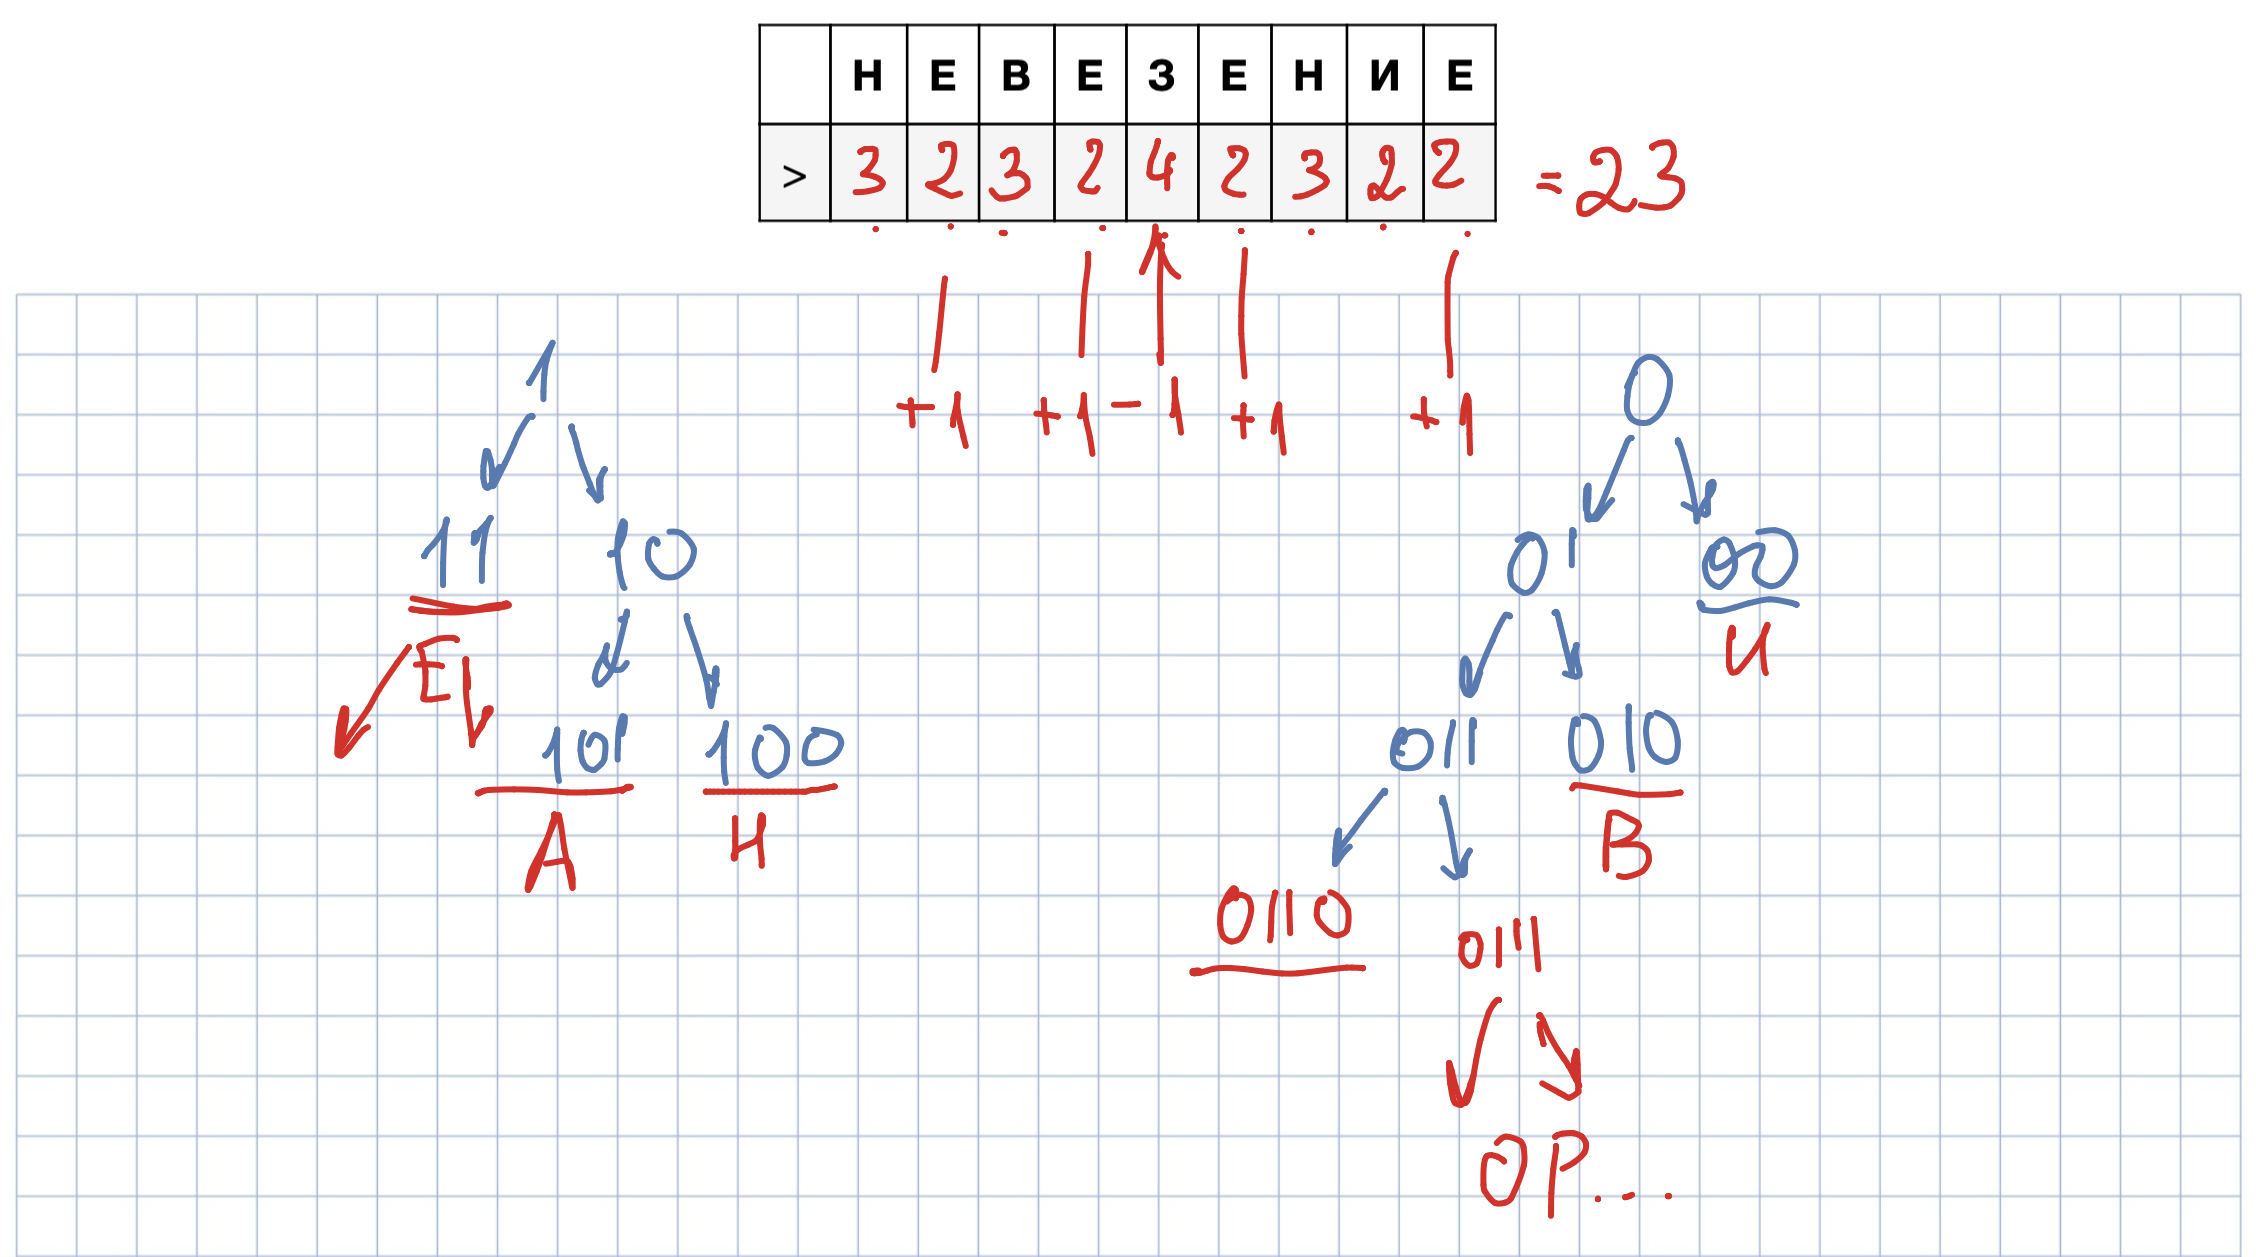 Н Е В Е З Е Н И Е
> 3 2 3 2 4 2 3 2 2 = 23
+1 +1 -1 +1 +1
1 0
11 10 01 00
Е И
101 100 011 010
А Н В
0110 0111
ОР....